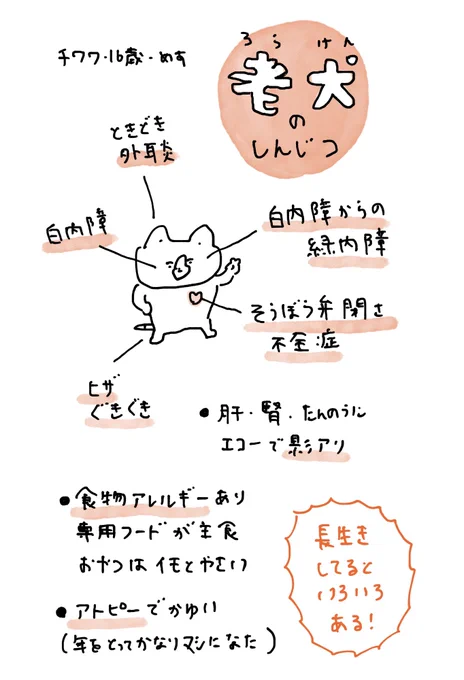 チワワ・16歳・めす
ろうけん
老犬
の
しんじつ
ときどき
外耳炎
白内障
白内障からの
緑内障
そうぼう弁閉さ
不全症
ヒザ
ぐきぐき
●肝・腎・たんのうに
エコーで影アリ
●食物アレルギーあり
専用フードが主食
おやつはイモとやさい
●アトピーでかゆい
(年をとってかなりマシになた)
長生き
してると
いろいろ
ある!